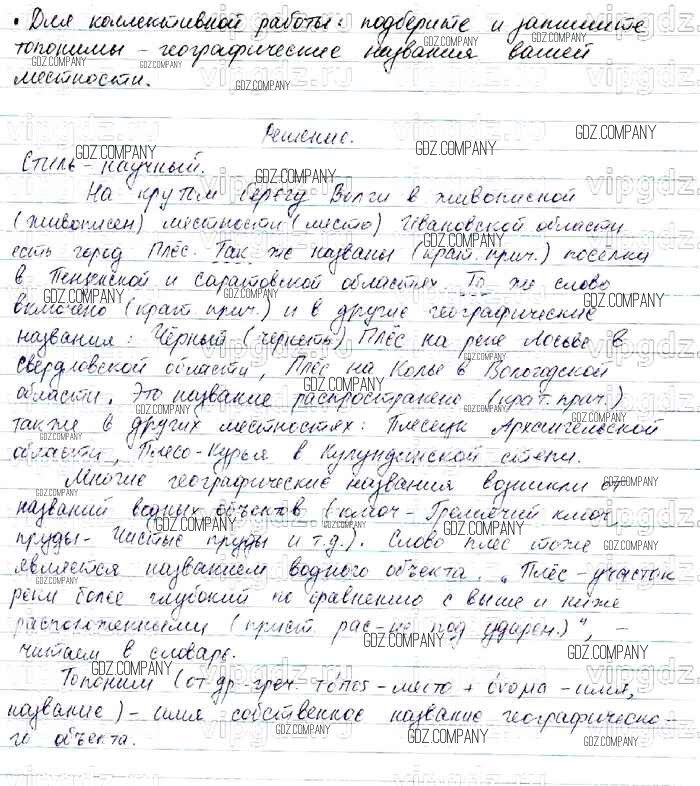 • Для коллективной работы: подберите и запишите
топонимы – географические названия вашей
местности.
Решение.
Стиль – научный.
На крутом берегу Волги в живописной
(живописен) местности (место) Ивановской области
есть город Плёс. Так же названы (крат. прич.) посёлки
в Пензенской и Саратовской областях. То же слово
включено (крат. прич.) и в другие географические
названия: Чёрный (чернеть) Плёс на реке Лосьве в
Свердловской области, Плёс на Колье в Вологодской
области. Это название распространено (крат. прич.)
также в других местностях: Плесецк Архангельской
области, Плесо-Курья в Кулундинской степи.
Многие географические названия возникли от
названий водных объектов (ключ – Гремячий ключ,
пруды – Чистые пруды и т.д.). Слово плес тоже
является названием водного объекта. „Плёс – участок
реки более глубокий по сравнению с выше и ниже
расположенными (прист. рас- не под ударен.)", –
читаем в словаре.
Топоним (от др.-греч. τόπος – место + όνομα – имя,
название) – имя собственное название географическо-
го объекта.